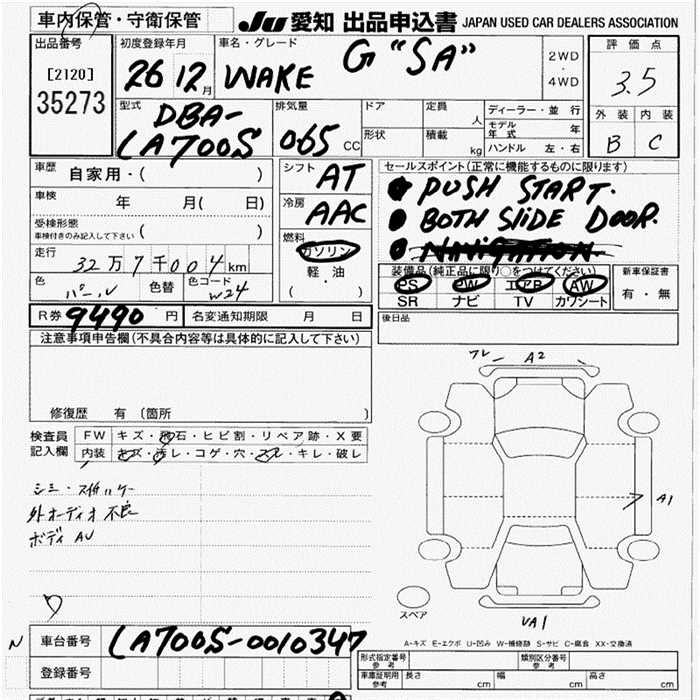 車内保管・守衛保管
JU 愛知 出品申込書 JAPAN USED CAR DEALERS ASSOCIATION
出品番号
[2120]
35273
初度登録年月
26 12月
車名・グレード
WAKE G "SA"
2WD
・
4WD
評価点
3.5
外装 内装
B C
型式
DBA-
LA700S
排気量
065 CC
ドア
形状
定員 人
積載 kg
ディーラー・並行
モデル年式 年
ハンドル 左・右
車歴
自家用・( )
車検
年 月( 日)
受検形態
車検付きのみ記入して下さい ( )
走行
32万7千004km
色
パール
色替
色コード
W24
シフト
AT
冷房
AAC
燃料
ガソリン
軽・油
( ・ )
セールスポイント(正常に機能するものに限ります)
● PUSH START.
● BOTH SliDE DOOR.
● NAViGATiON.
装備品(純正品に限り○をつけてください)
PS PW エアB AW
SR ナビ TV カワシート
新車保証書
有・無
R券 9490円
名変通知期限 月 日
後日品
注意事項申告欄(不具合内容等は具体的に記入して下さい)
修復歴 有(箇所 )
検査員
記入欄
FW キズ・飛石・ヒビ割・リペア跡・X要
内装 キズ・汚レ・コゲ・穴・スレ・キレ・破レ
外オーディオ不良
ボディ AU
フレ
A2
A1
スペア
VA1
A-キズ E-エクボ U-凹み W-補修跡 S-サビ C-腐食 XX-交換済
N
車台番号
LA700S-0010347
登録番号
形式指定番号
参考
類別区分番号
参考
車庫証明用
参考
長さ cm
幅 cm
高さ cm